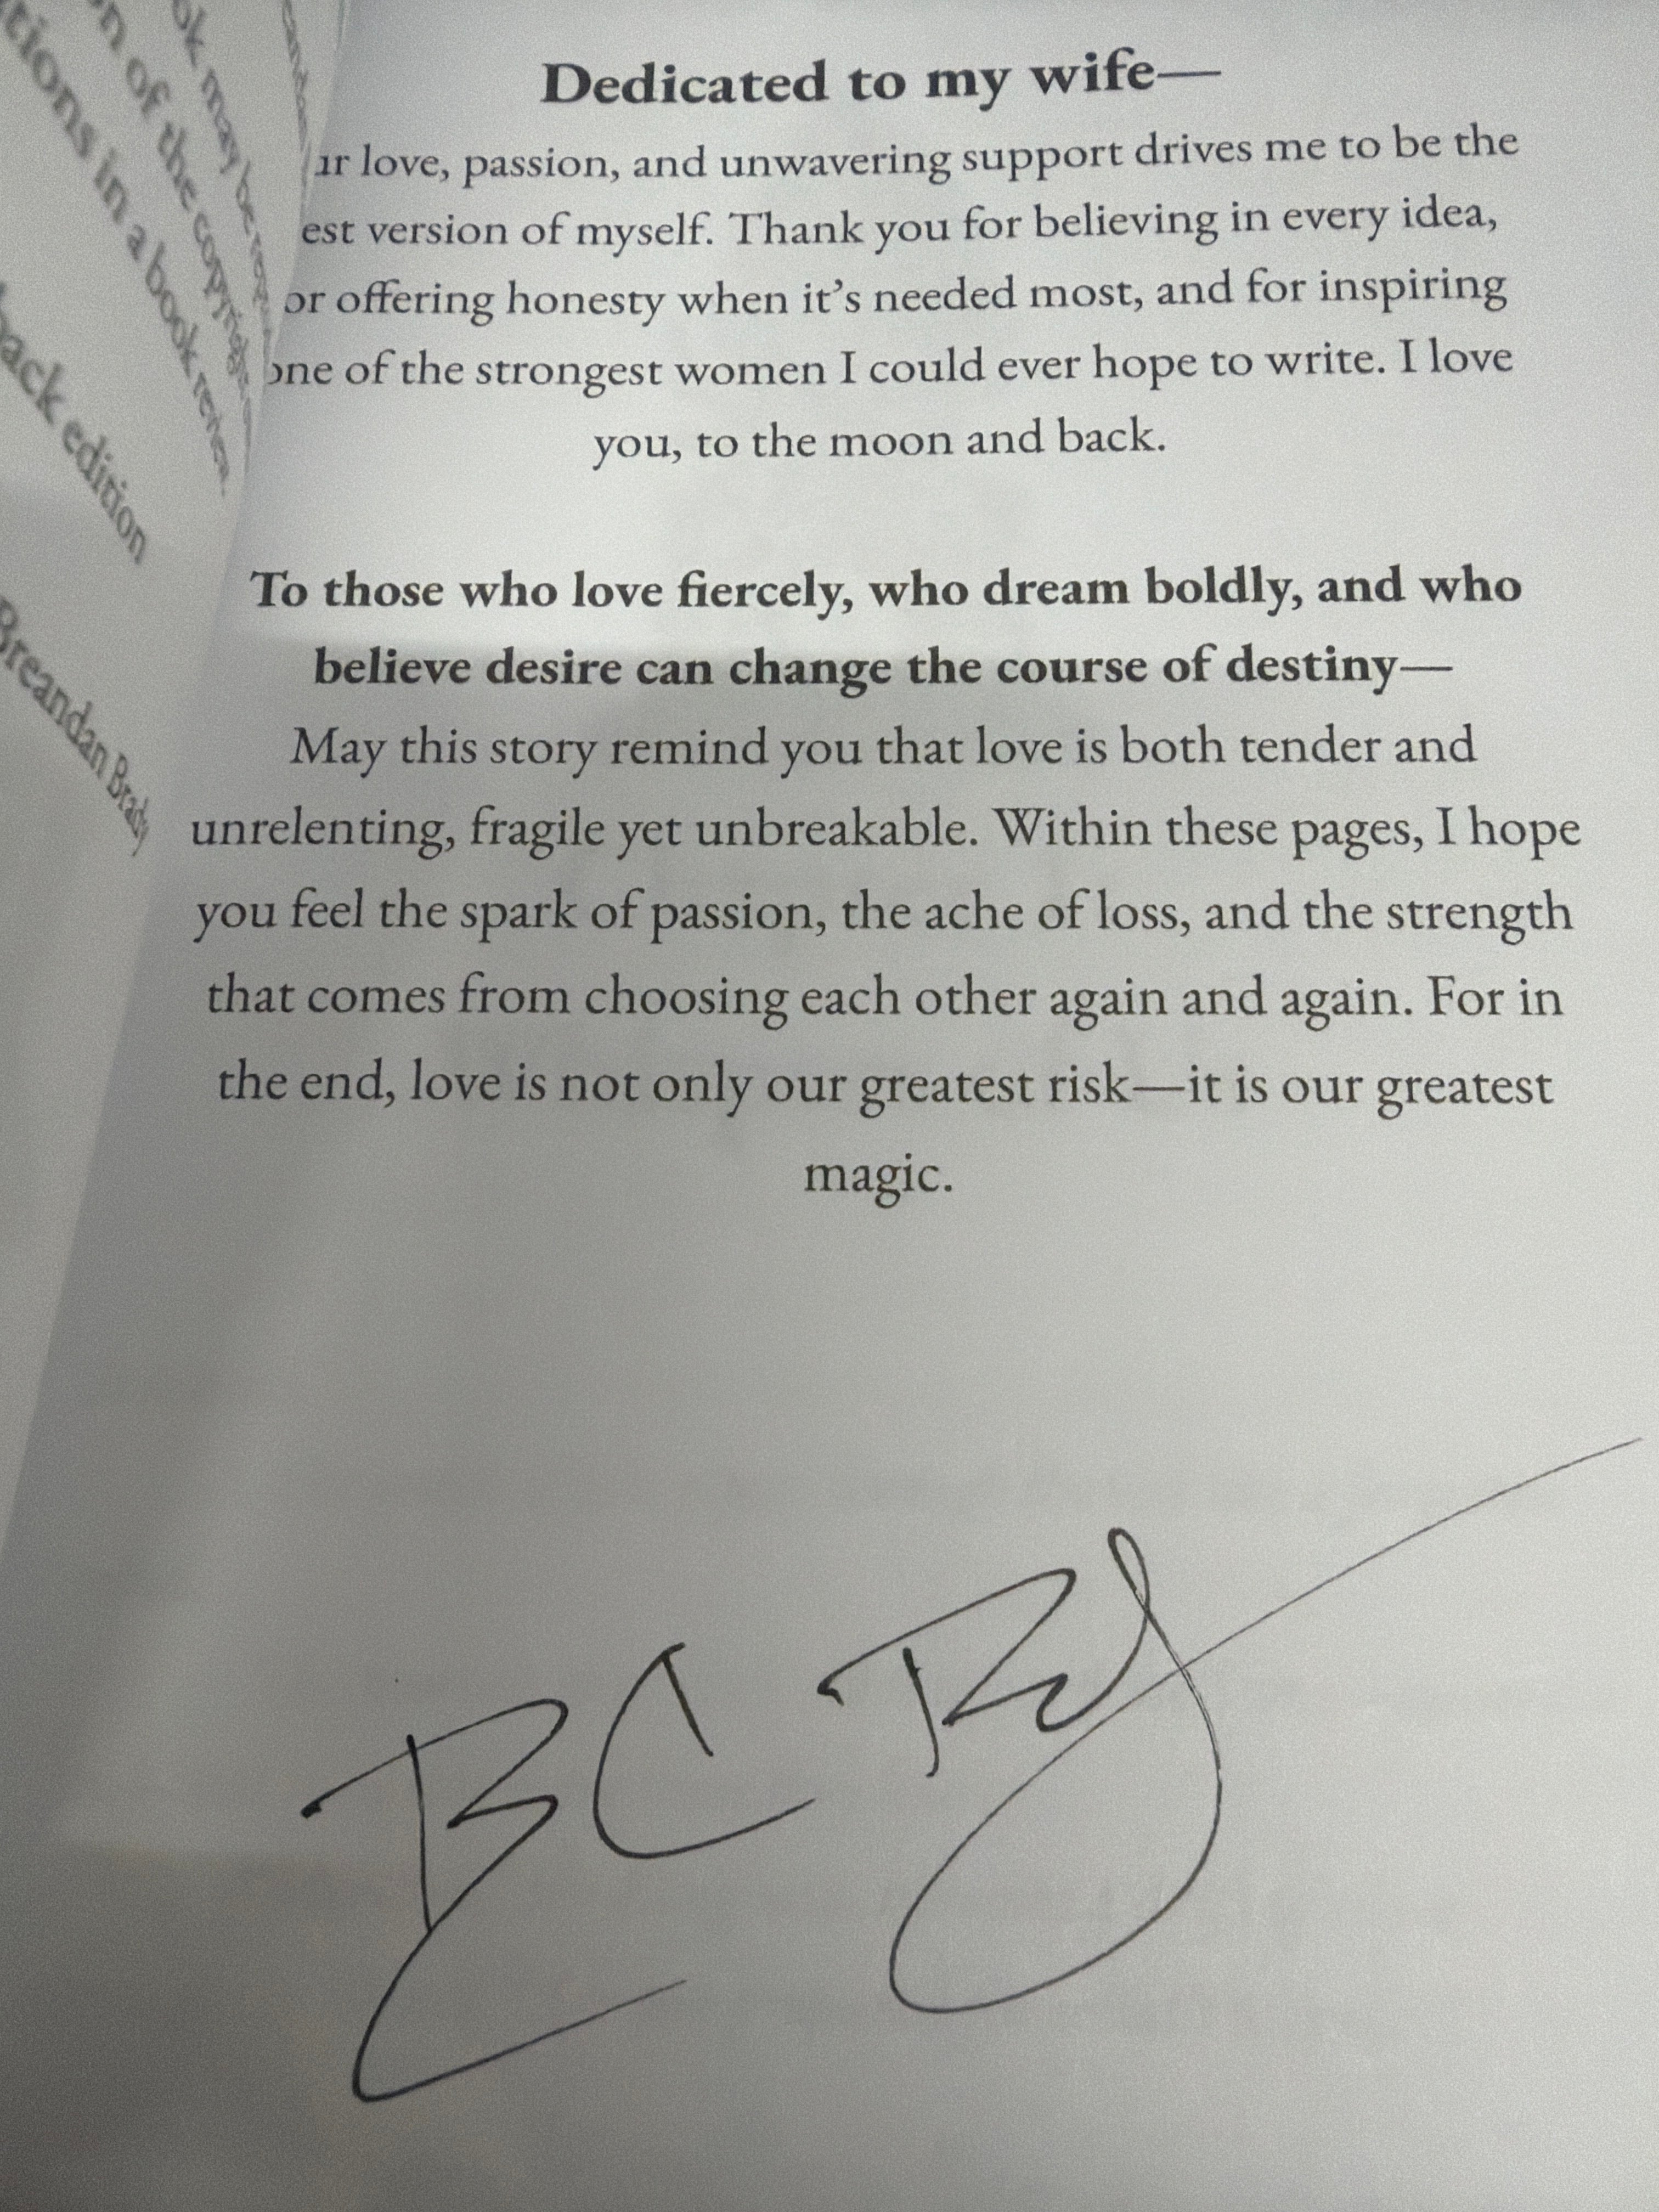 tions in a book review.
back edition
Breandan Brady
Dedicated to my wife—
love, passion, and unwavering support drives me to be the
est version of myself. Thank you for believing in every idea,
or offering honesty when it's needed most, and for inspiring
one of the strongest women I could ever hope to write. I love
you, to the moon and back.
To those who love fiercely, who dream boldly, and who
believe desire can change the course of destiny—
May this story remind you that love is both tender and
unrelenting, fragile yet unbreakable. Within these pages, I hope
you feel the spark of passion, the ache of loss, and the strength
that comes from choosing each other again and again. For in
the end, love is not only our greatest risk—it is our greatest
magic.